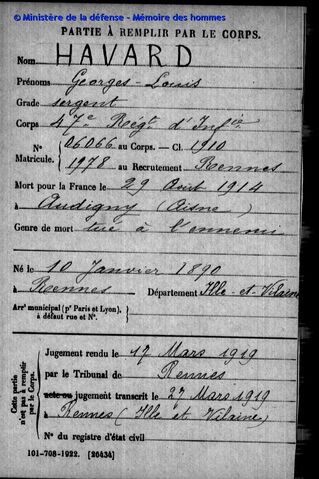 © Ministère de la défense - Mémoire des hommes
PARTIE À REMPLIR PAR LE CORPS.
Nom HAVARD
Prénoms Georges-Louis
Grade sergent
Corps 47e Régt d'Infie
N° 06066 au Corps. — Cl. 1910
Matricule. 1978 au Recrutement Rennes
Mort pour la France le 29 Août 1914
à Audigny (Aisne)
Genre de mort tué à l'ennemi
Né le 10 Janvier 1890
à Rennes Département Ille-et-Vilaine
Arrt municipal (pr Paris et Lyon),
à défaut rue et N°.
Cette partie n'est pas à remplir par le Corps.
Jugement rendu le 17 Mars 1919
par le Tribunal de Rennes
acte ou jugement transcrit le 27 Mars 1919
à Rennes (Ille et Vilaine)
N° du registre d'état civil
101-708-1922. [26434]